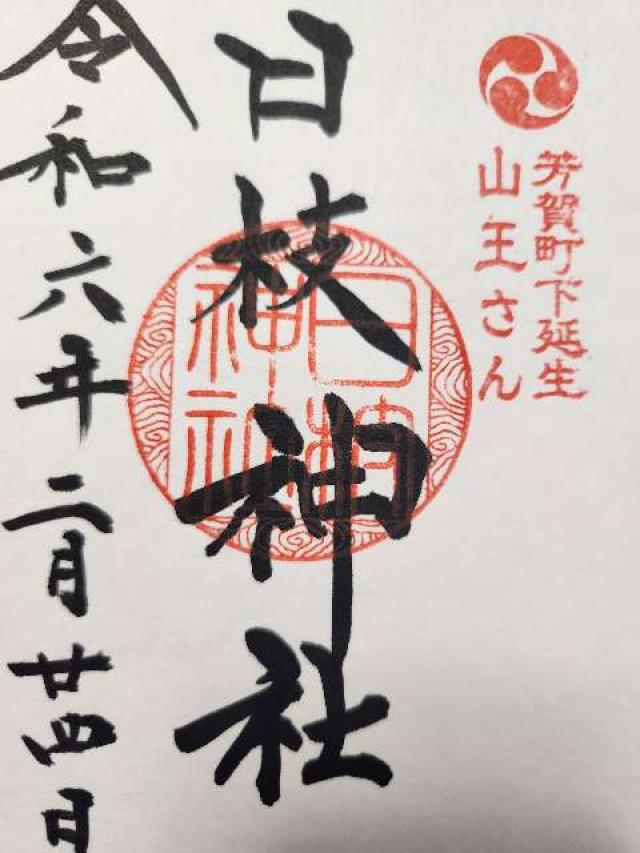 芳賀町下延生
山王さん
日枝神社
日枝
神社
令和六年二月廿四日